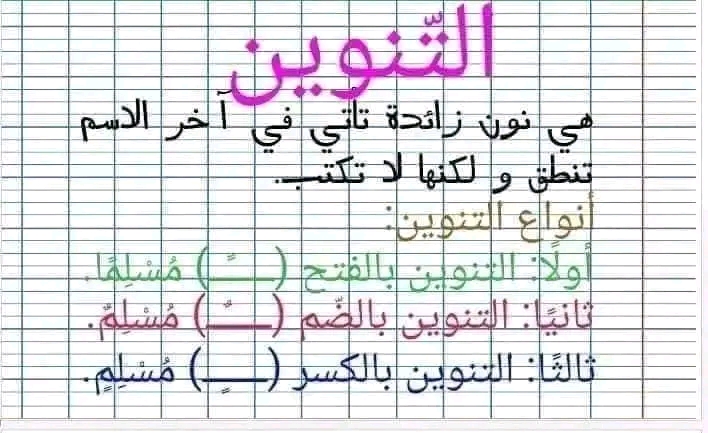 التّنوين
هي نون زائدة تأتي في آخر الاسم
تنطق و لكنها لا تكتب.
أنواع التنوين:
أولًا: التنوين بالفتح (ـــًـــ) مُسْلِمًا.
ثانيًا: التنوين بالضّم (ـــٌـــ) مُسْلِمٌ.
ثالثًا: التنوين بالكسر (ـــٍـــ) مُسْلِمٍ.